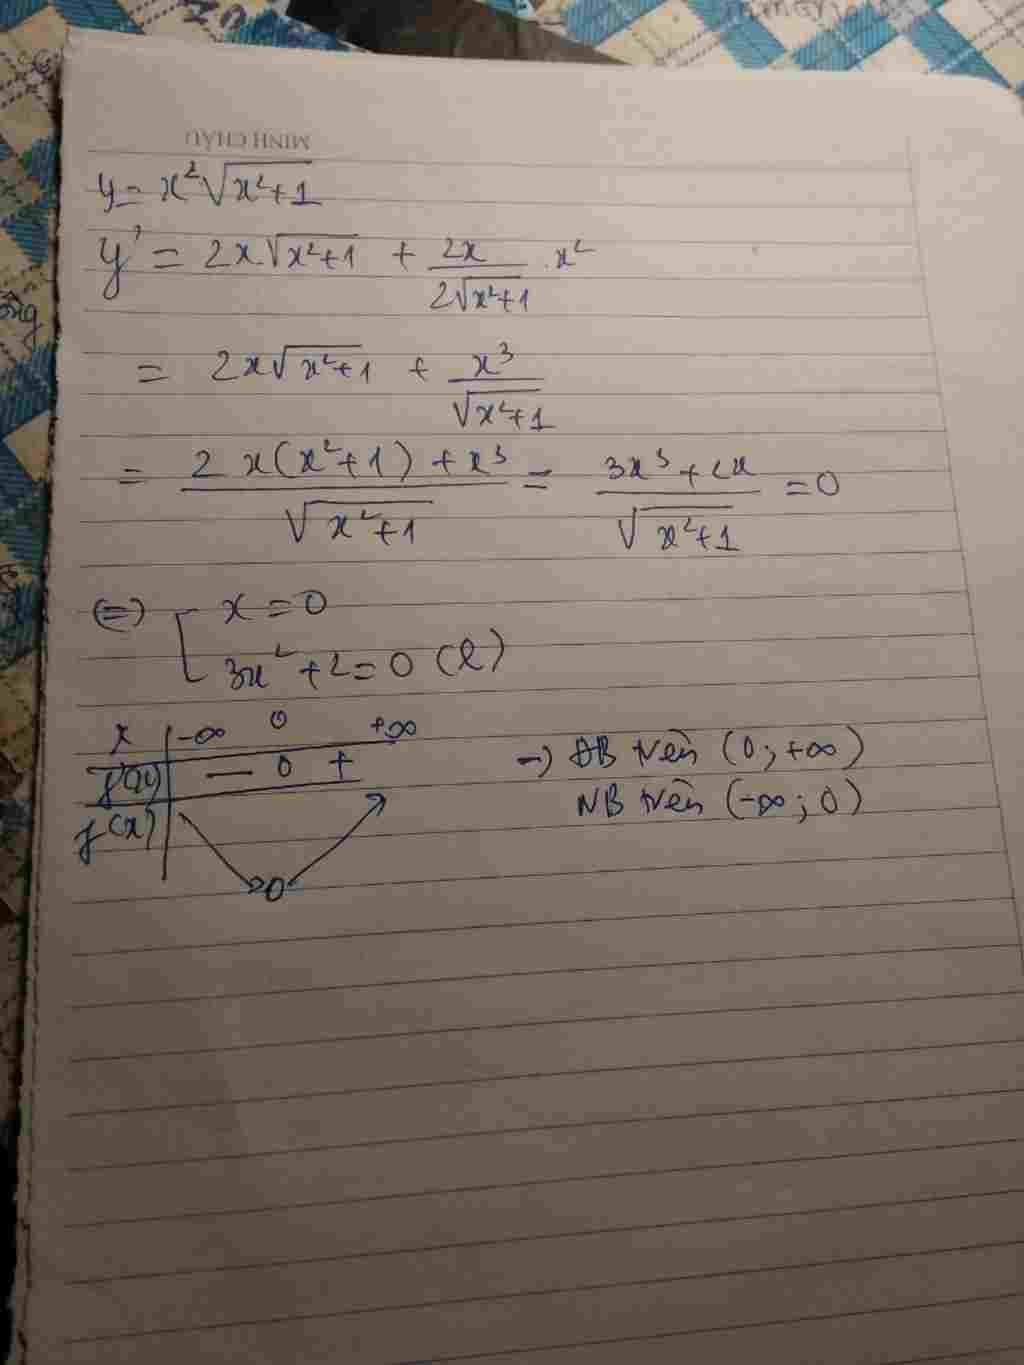 MINH CHÂU
y = x²√(x²+1)
y' = 2x√(x²+1) + 2x/(2√(x²+1)) . x²
= 2x√(x²+1) + x³/√(x²+1)
= (2x(x²+1) + x³)/√(x²+1) = (3x³+2x)/√(x²+1) = 0
(=) [ x = 0
3x²+2=0 (l)
x | -∞ 0 +∞
f'(x) | — 0 +
f(x) | ↘ 0 ↗
→ ĐB trên (0; +∞)
NB trên (-∞; 0)